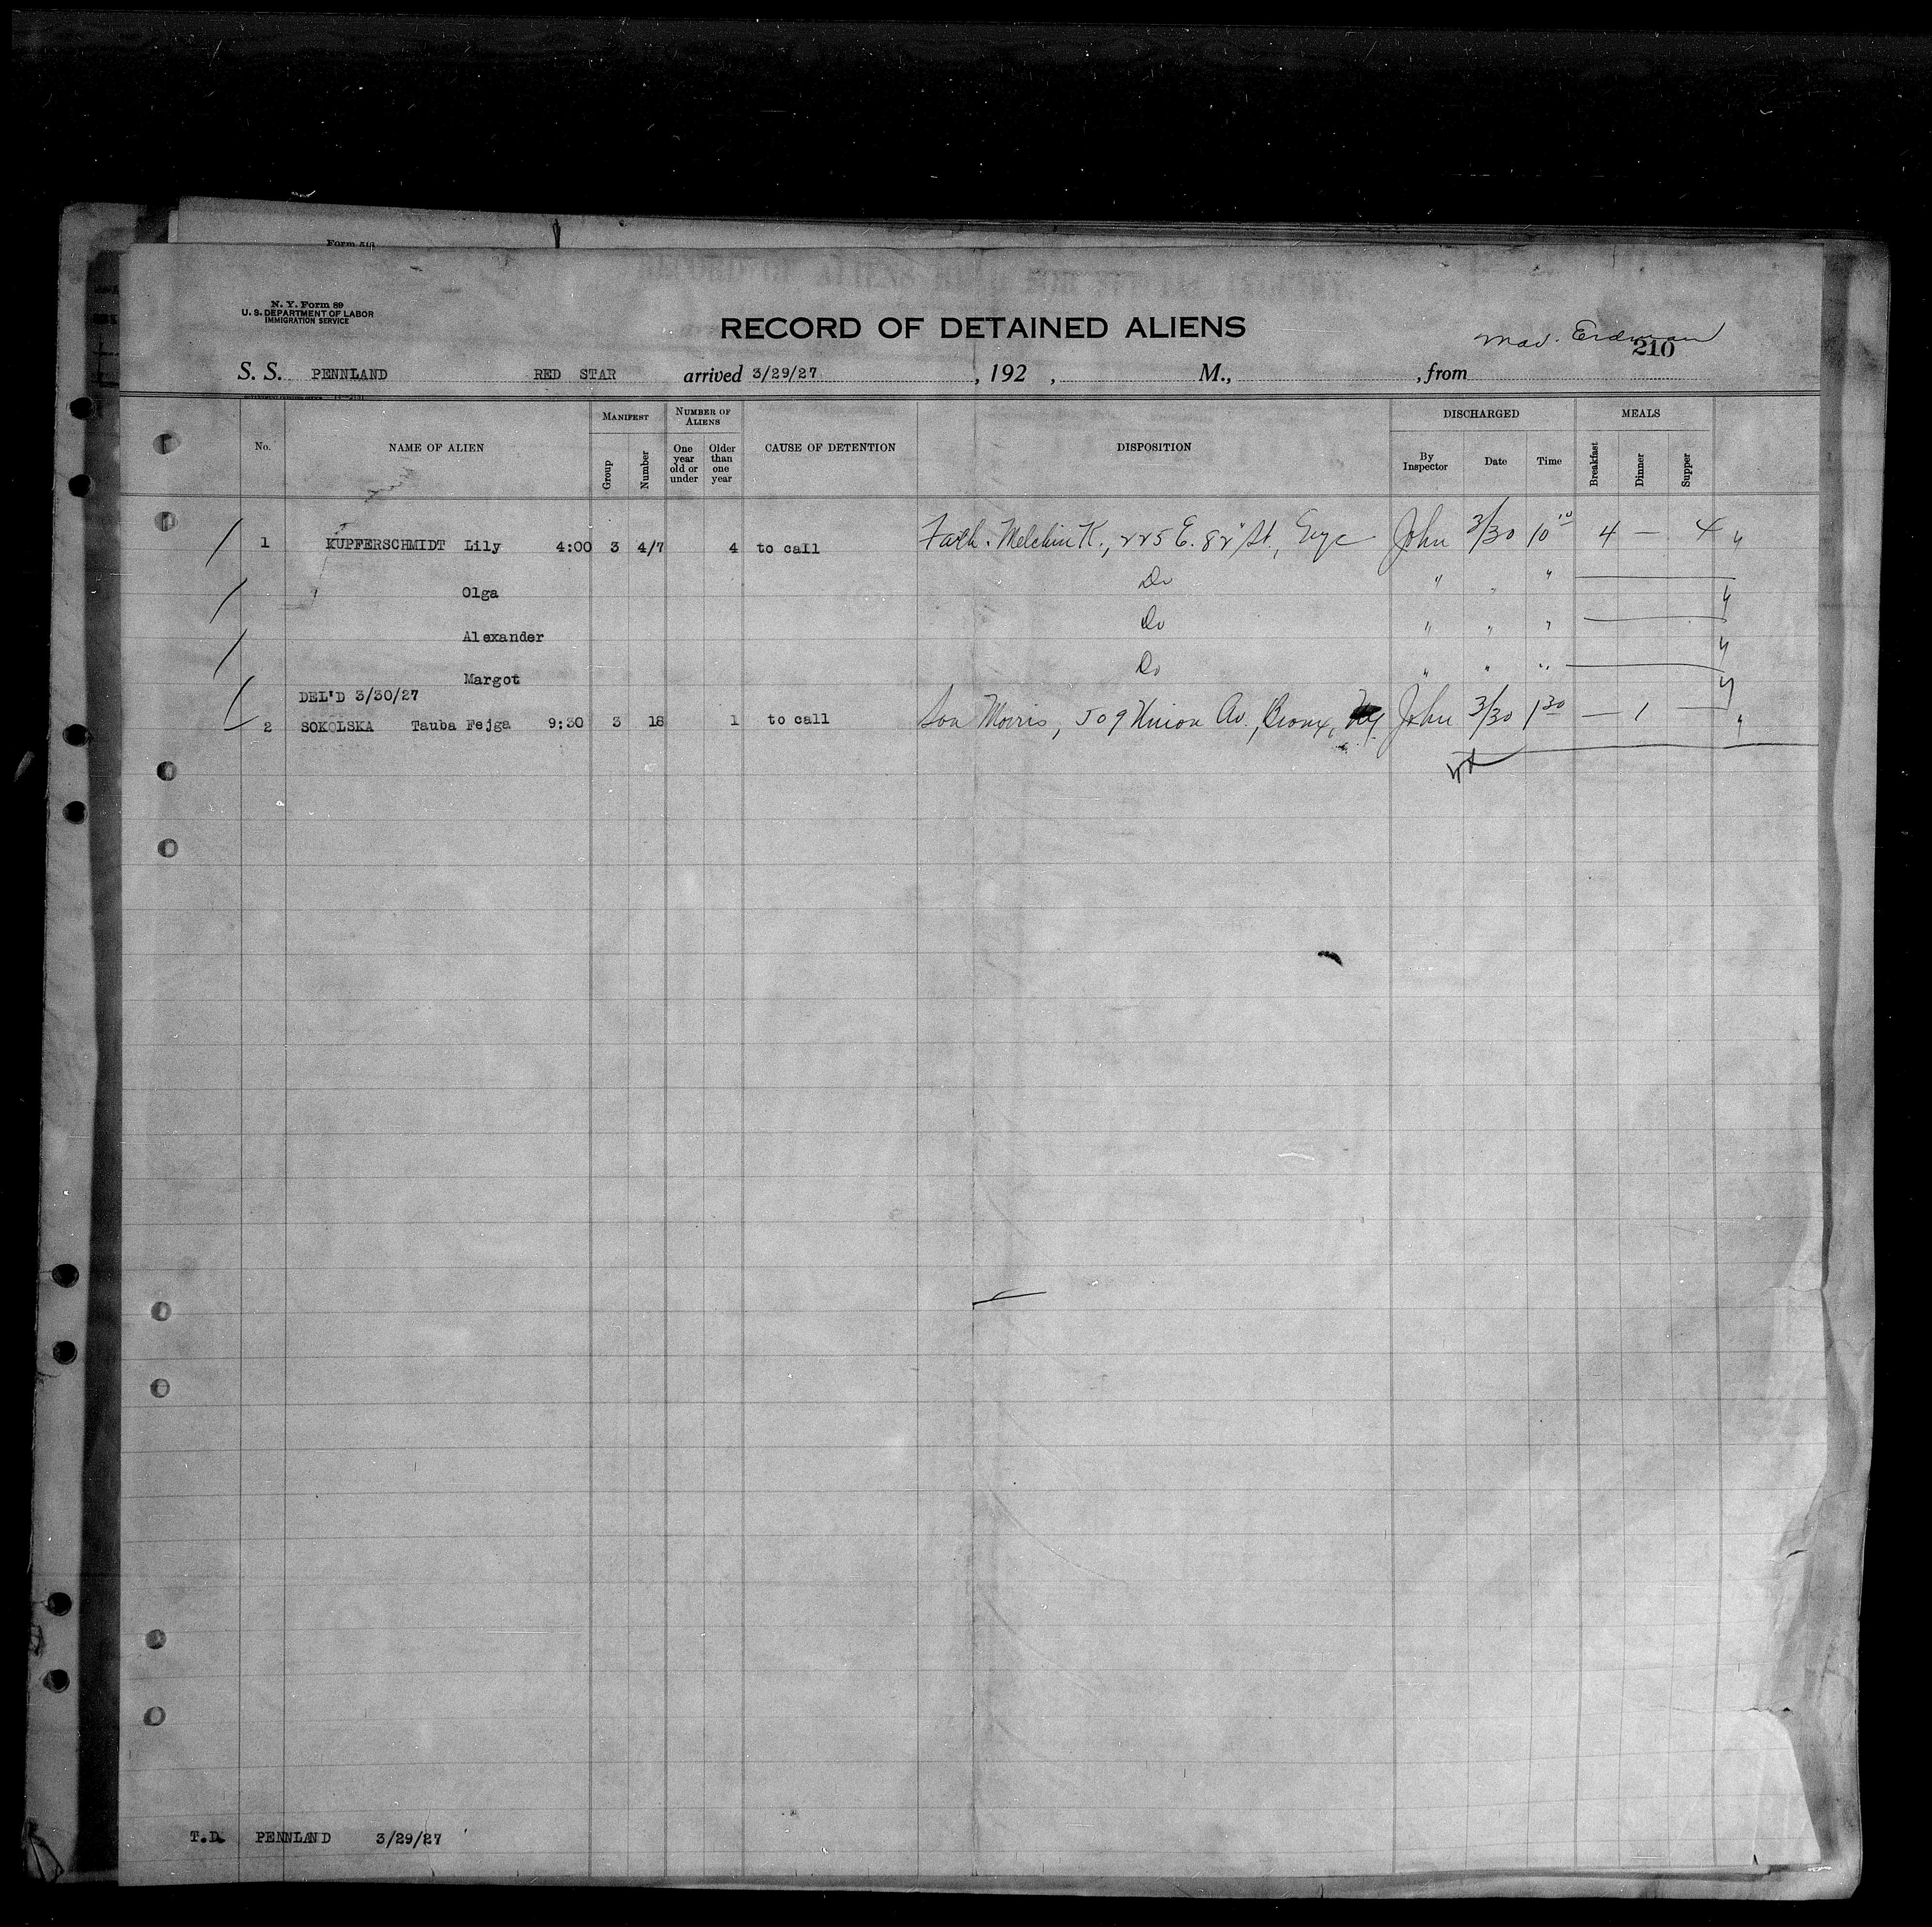 Form 518
N. Y. Form 89
U. S. DEPARTMENT OF LABOR
IMMIGRATION SERVICE
RECORD OF DETAINED ALIENS
Erdman
210
S. S. PENNLAND RED STAR arrived 3/29/27, 192 , M., , from
No. NAME OF ALIEN MANIFEST Group Number NUMBER OF ALIENS One year old or under Older than one year CAUSE OF DETENTION DISPOSITION DISCHARGED By Inspector Date Time MEALS Breakfast Dinner Supper
1 KUPFERSCHMIDT Lily 4:00 3 4/7 4 to call Fath. K., 225 E. 82" St., John 3/30 10 10 4 — 4
Olga Do " " "
Alexander Do " " "
Margot Do " " "
DEL'D 3/30/27
2 SOKOLSKA Tauba Fejga 9:30 3 18 1 to call Son Morris, 509 Union Av., Bronx, NY John 3/30 1 30 — 1 —
T.D. PENNLAND 3/29/27